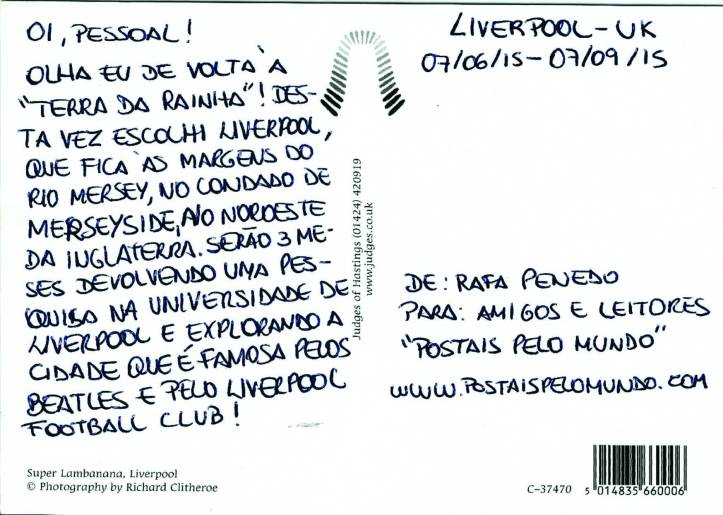 OI, PESSOAL!
OLHA EU DE VOLTA À
"TERRA DA RAINHA"! DES-
TA VEZ ESCOLHI LIVERPOOL,
QUE FICA ÀS MARGENS DO
RIO MERSEY, NO CONDADO DE
MERSEYSIDE, NO NOROESTE
DA INGLATERRA. SERÃO 3 ME-
SES DEVOLVENDO UMA PES-
QUISA NA UNIVERSIDADE DE
LIVERPOOL E EXPLORANDO A
CIDADE QUE É FAMOSA PELOS
BEATLES E PELO LIVERPOOL
FOOTBALL CLUB!
Super Lambanana, Liverpool
© Photography by Richard Clitheroe
Judges of Hastings (01424) 420919
www.judges.co.uk
LIVERPOOL - UK
07/06/15 - 07/09/15
DE: RAFA PENEDO
PARA: AMIGOS E LEITORES
"POSTAIS PELO MUNDO"
WWW.POSTAISPELOMUNDO.COM
C-37470
5 014835 660006